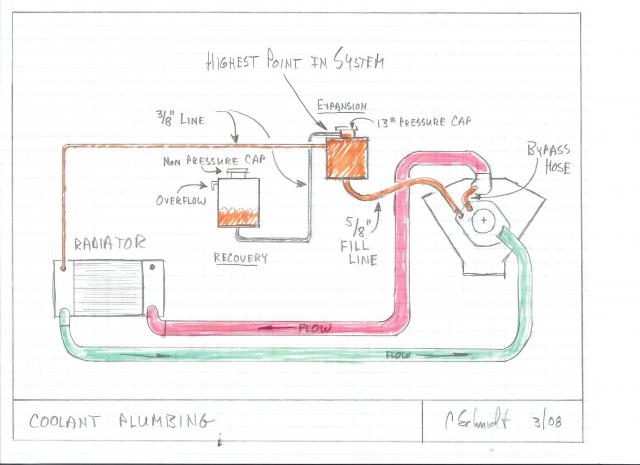 HIGHEST POINT IN SYSTEM
EXPANSION
3/8" LINE
13# PRESSURE CAP
NON PRESSURE CAP
BYPASS
HOSE
OVERFLOW
5/8"
FILL
LINE
RADIATOR
RECOVERY
FLOW
FLOW
COOLANT PLUMBING
C Schmidt 3/08